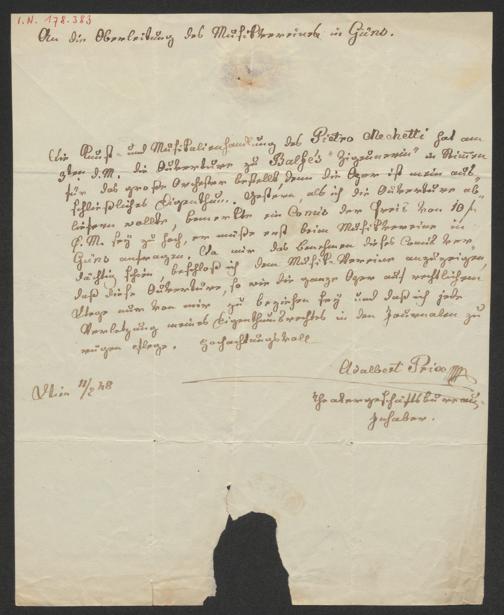 I.N. 178.383
An die Oberleitung des Musikvereines in Güns.
Die Kunst- und Musikalienhandlung des Pietro Mechetti hat am
9ten d. M. die Ouverture zu Balfe's "Zigeunerin" in Stimmen
für das große Orchester bestellt, denn die Oper ist mein aus-
schließliches Eigenthum. Gestern, als ich die Ouverture ab-
liefern wollte, bemerkte ein Comis der Preis von 10 f.
C. M. sey zu hoch, er müße erst beim Musikvereine in
Güns anfragen. Da mir das benehmen dieses Comis ver-
dächtig schien, beschloß ich dem Musik-Vereine anzuzeigen,
daß diese Ouverture, so wie die ganze Oper auf rechtlichem
Wege nur von mir zu beziehen sey und daß ich jede
Verletzung meines Eigenthumsrechtes in den Journalen zu
rügen pflege. Hochachtungsvoll
Adalbert Prix
Wien 11/2 48
Theatergeschäftsbureau-
Inhaber.